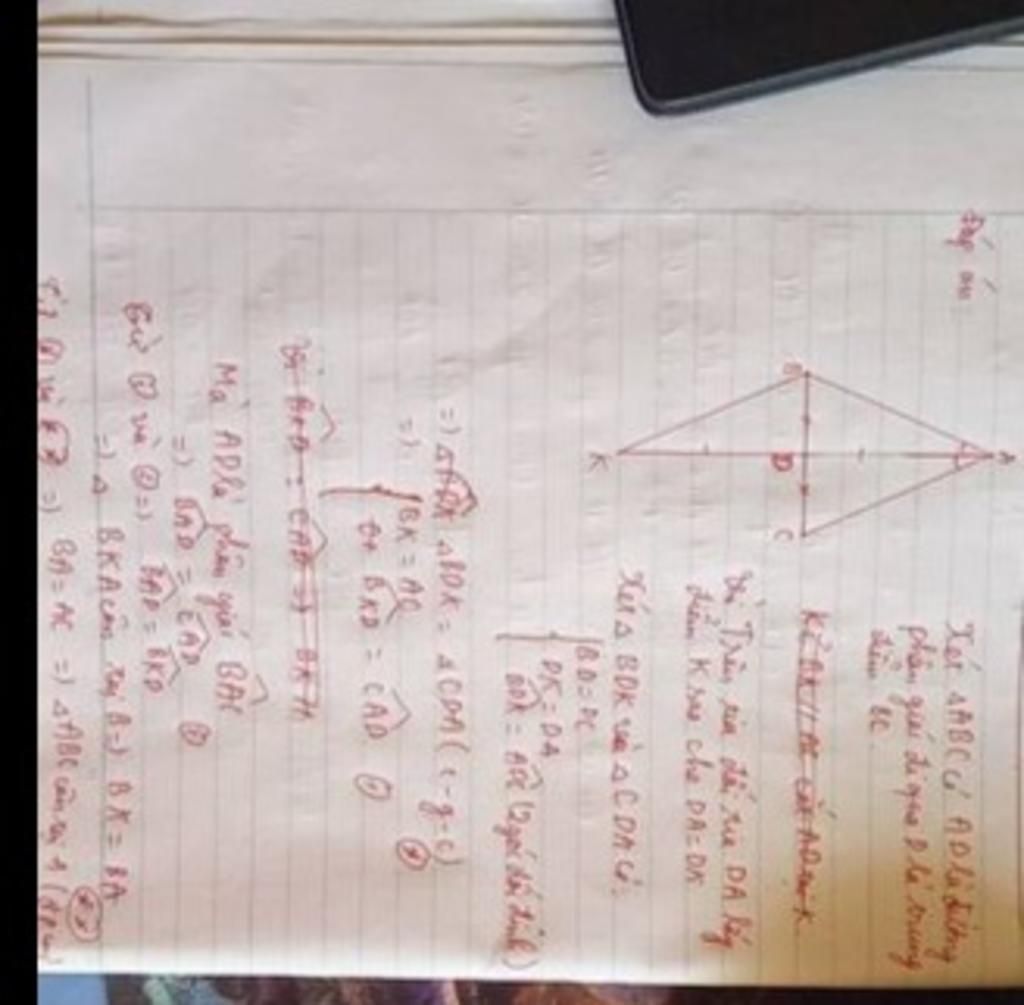 Đáp án
A
B
D
C
K
Xét △ABC có AD là đường
phân giác đi qua D là trung
điểm BC
Kẻ BK // AC cắt AD tại K
Trên tia đối tia DA lấy
điểm K sao cho DA = DK
Xét △BDK và △CDA có:
BD = DC
DK = DA
BDK = ADC (2 góc đối đỉnh)
=) △BDK = △CDA (c-g-c)
=) BK = AC (*)
BKD = CAD (1)
BKD = CAD =) BK //
Mà AD là phân giác BAC
=) BAD = CAD (2)
Từ (1) và (2) =) BAD = BKD
=) △ BKA cân tại B =) BK = BA (**)
Từ (*) và (**) =) BA = AC =) △ABC cân tại A (đpcm)